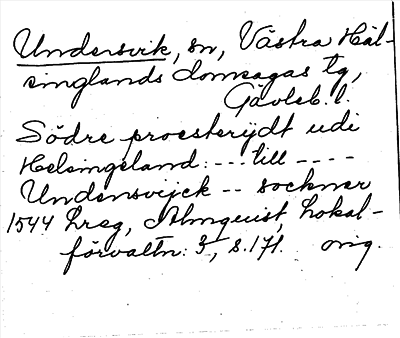 Undersvik, sn, Västra Häl-
singlands domsagas tg,
Gävleb. l.
Södre proesterijdt udi
Helsingeland: --- till ----
Undensvijck -- socknar
1544 hreg, Almquist, Lokal-
förvaltn. 3, s. 171. orig.